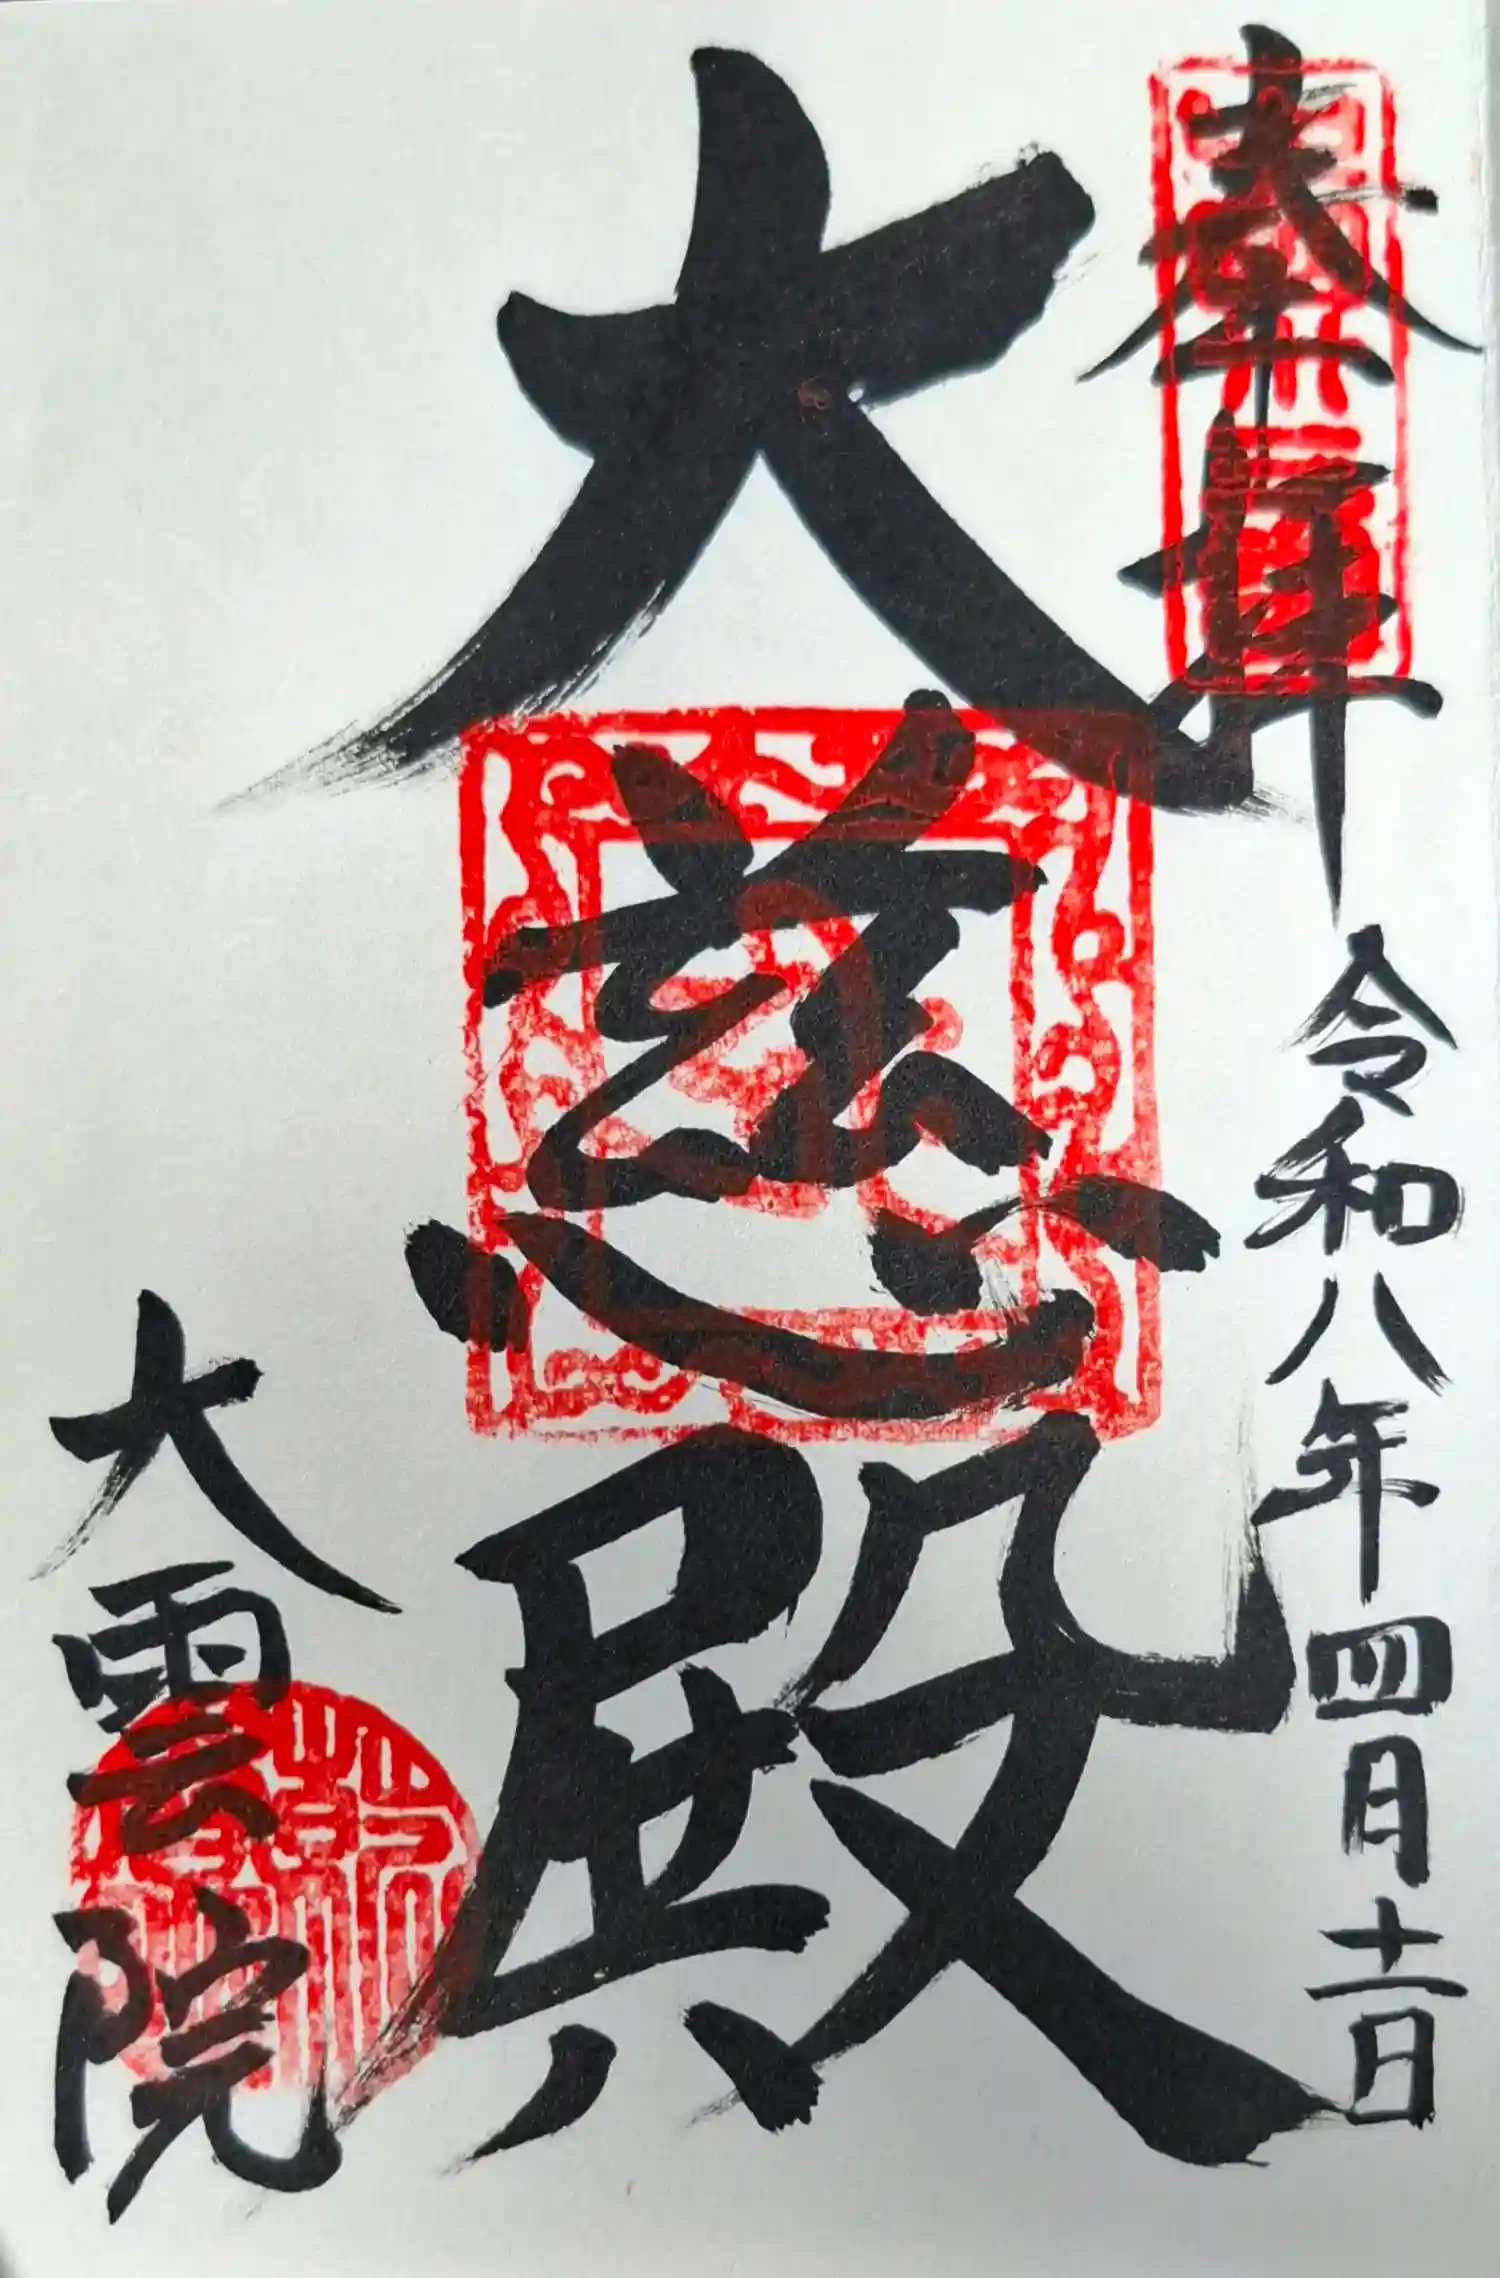 奉拝
令和八年四月十二日
大慈殿
大雲院